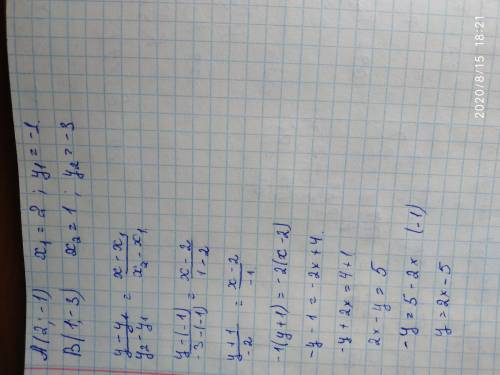 A(2;-1) x₁=2; y₁=-1
B(1;-3) x₂=1; y₂=-3
(y-y₁)/(y₂-y₁) = (x-x₁)/(x₂-x₁)
(y-(-1))/(-3-(-1)) = (x-2)/(1-2)
(y+1)/(-2) = (x-2)/(-1)
-1(y+1)=-2(x-2)
-y-1=-2x+4
-y+2x=4+1
2x-y=5
-y=5-2x (-1)
y=2x-5
2020/8/15 18:21